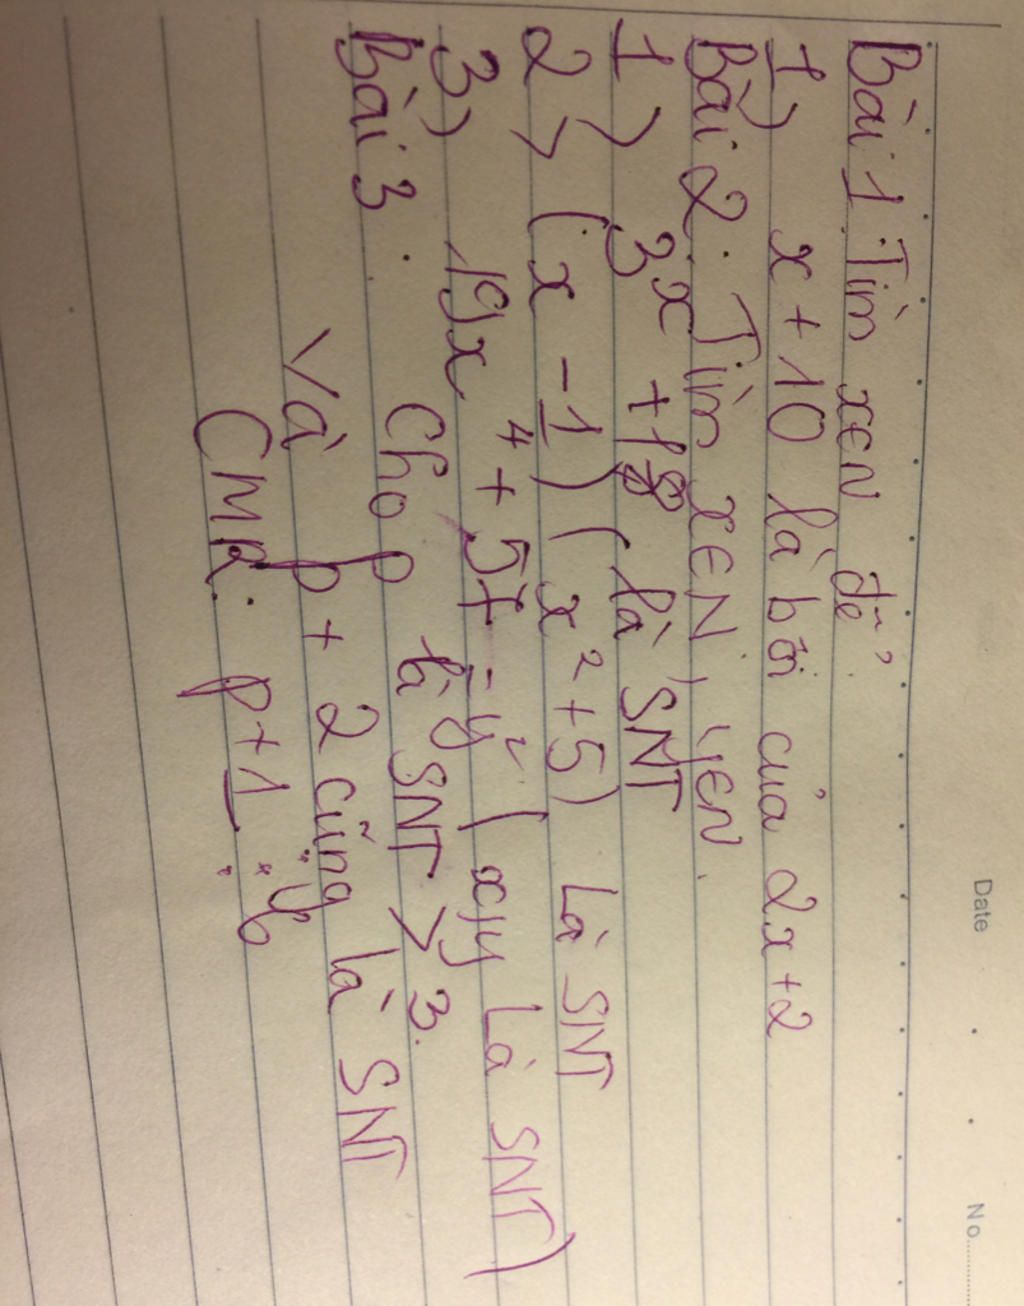 Date
No.
Bài 1 Tìm x∈N để
1) x + 10 là bội của 2x+2
Bài 2. Tìm x∈N, y∈N.
1) 3^x + 18 là SNT
2) (x - 1)(x² + 5) Là SNT
3) 19x⁴ + 57 = y² (x,y Là SNT)
Bài 3. Cho p là SNT > 3.
Và p + 2 cũng là SNT
CMR: p+1 ⋮ 6